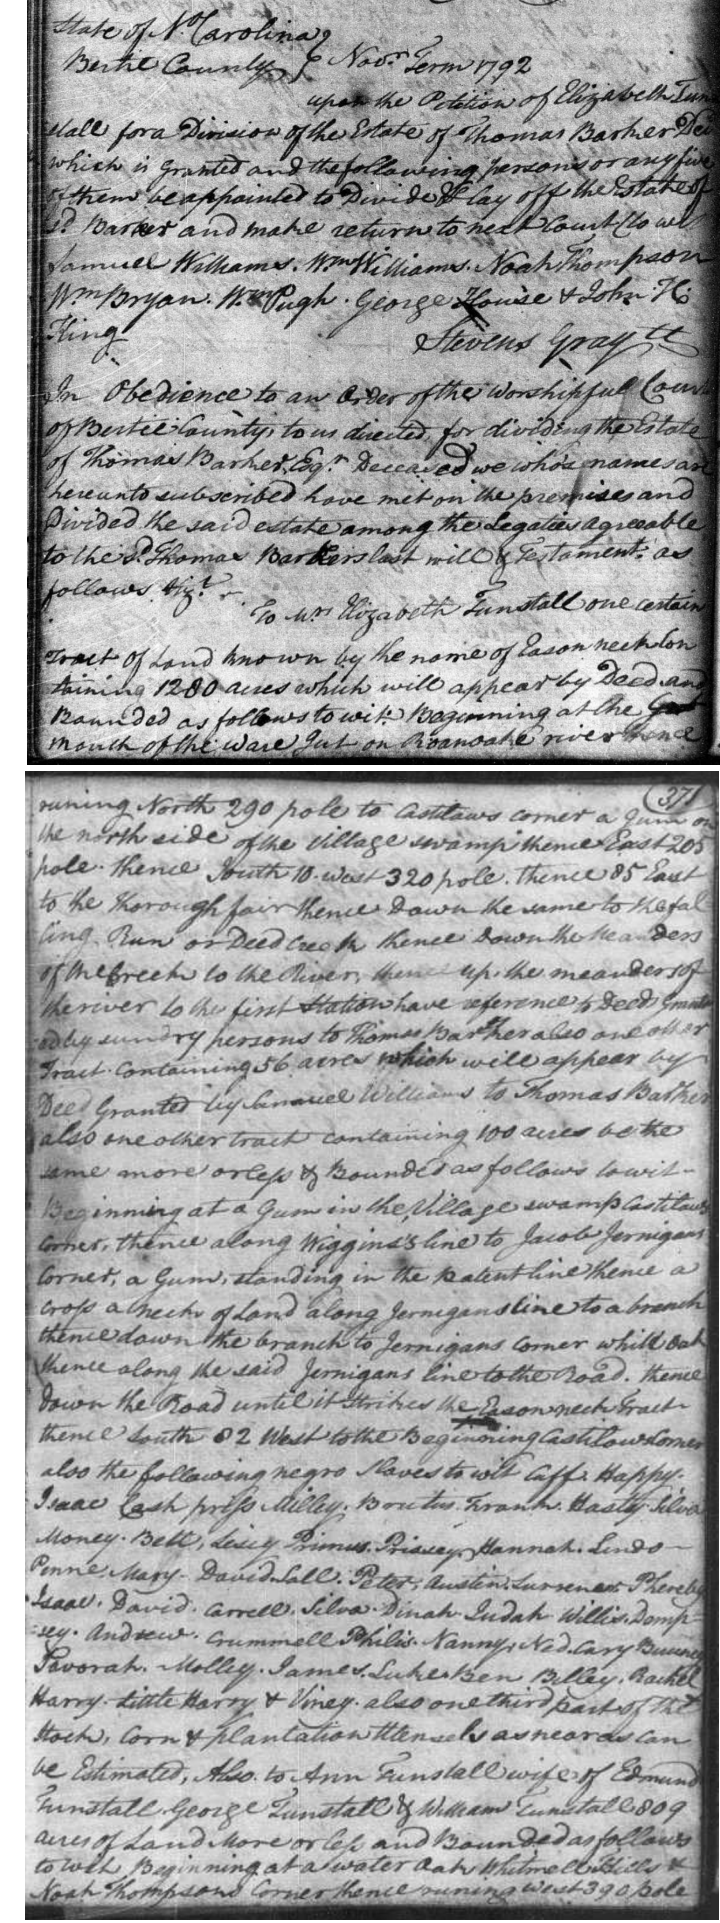 State of No. Carolina }
Bertie County } Novr. Term 1792
upon the Petition of Elizabeth Tun
stall for a Division of the Estate of Thomas Barker Decd
which is granted and the following persons or any five
of them be appointed to Divide & lay off the Estate of
sd. Barker and make return to next Court (to wit
Samuel Williams. Wm Williams. Noah Thompson
Wm Bryan. Wm Pugh. George House & John H
King
Stevens Gray
In Obedience to an Order of the Worshipful Court
of Bertie County, to us directed for dividing the Estate
of Thomas Barker, Esqr. Deceased we who's names are
hereunto subscribed have met on the premises and
Divided the said estate among the Legaties agreeable
to the sd. Thomas Barkers last will & Testament. as
follows. Vizt.
To Mrs Elizabeth Tunstall one certain
Tract of Land known by the name of Eason neck Con
taining 1280 acres which will appear by Deed. and
Bounded as follows to wit. Beginning at the
mouth of the Ware Gut on Roanoake river thence
371
runing North 290 pole to Castlaws corner a Gum on
the north side of the Village swamp thence East 205
pole. thence South 10. west 320 pole. thence 85 East
to the thorough fair thence Down the same to the fal
ling Run or Deed Creek thence Down the meanders
of the Creek to the River, thence up the meanders of
the river to the first Station have reference to Deeds Grant
ed by sundry persons to Thomas Barker also one other
Tract. containing 56 acres which will appear by
Deed Granted by Samuel Williams to Thomas Barker
also one other tract containing 100 acres be the
same more or less & Bounded as follows to wit-
Beginning at a Gum in the Village swamp Castilaws
Corner, thence along Wiggins's line to Jacob Jernigans
Corner, a Gum, standing in the patent line thence a
cross a neck of Land along Jernigans line to a branch
thence down the branch to Jernigans corner whitt Oak
thence along the said Jernigans line to the Road. thence
down the Road until it Strikes the Eason neck Tract
thence South 82 West to the Beginning Castilaws Corner
also the following negro slaves to wit Cuff. Happy.
Isaac Cash priss Milley. Brutus Frank. Hasty Silva
Money. Bett, Lesey Primus. Prissey Hannah. Lindo-
Penne, Mary. David. Sall. Peter, Austin. Phereby
Isaac. David. Carrell. Silva. Dinah Judah Willis. Demp-
sey. Andrew. Crummell Philis. Nanny. Ned. Cary
Savorah. Molley. James. Luke. Ben Billey. Rachel
Harry. Little Harry & Viney. also one third part of the
Stock, Corn & plantation Utensels as near as can
be Estimated, Also. to Ann Tunstall wife of Edmund
Tunstall. George Tunstall & William Tunstall 809
acres of Land More or less and Bounded as follows
to wit Beginning at a water Oak Whitmell Hills &
Noah Thompsons Corner thence runing West 390 pole